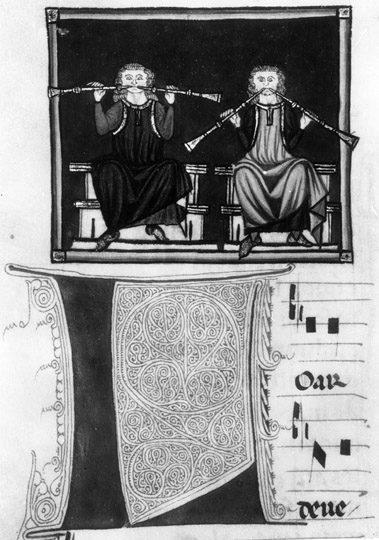 LOar
deue